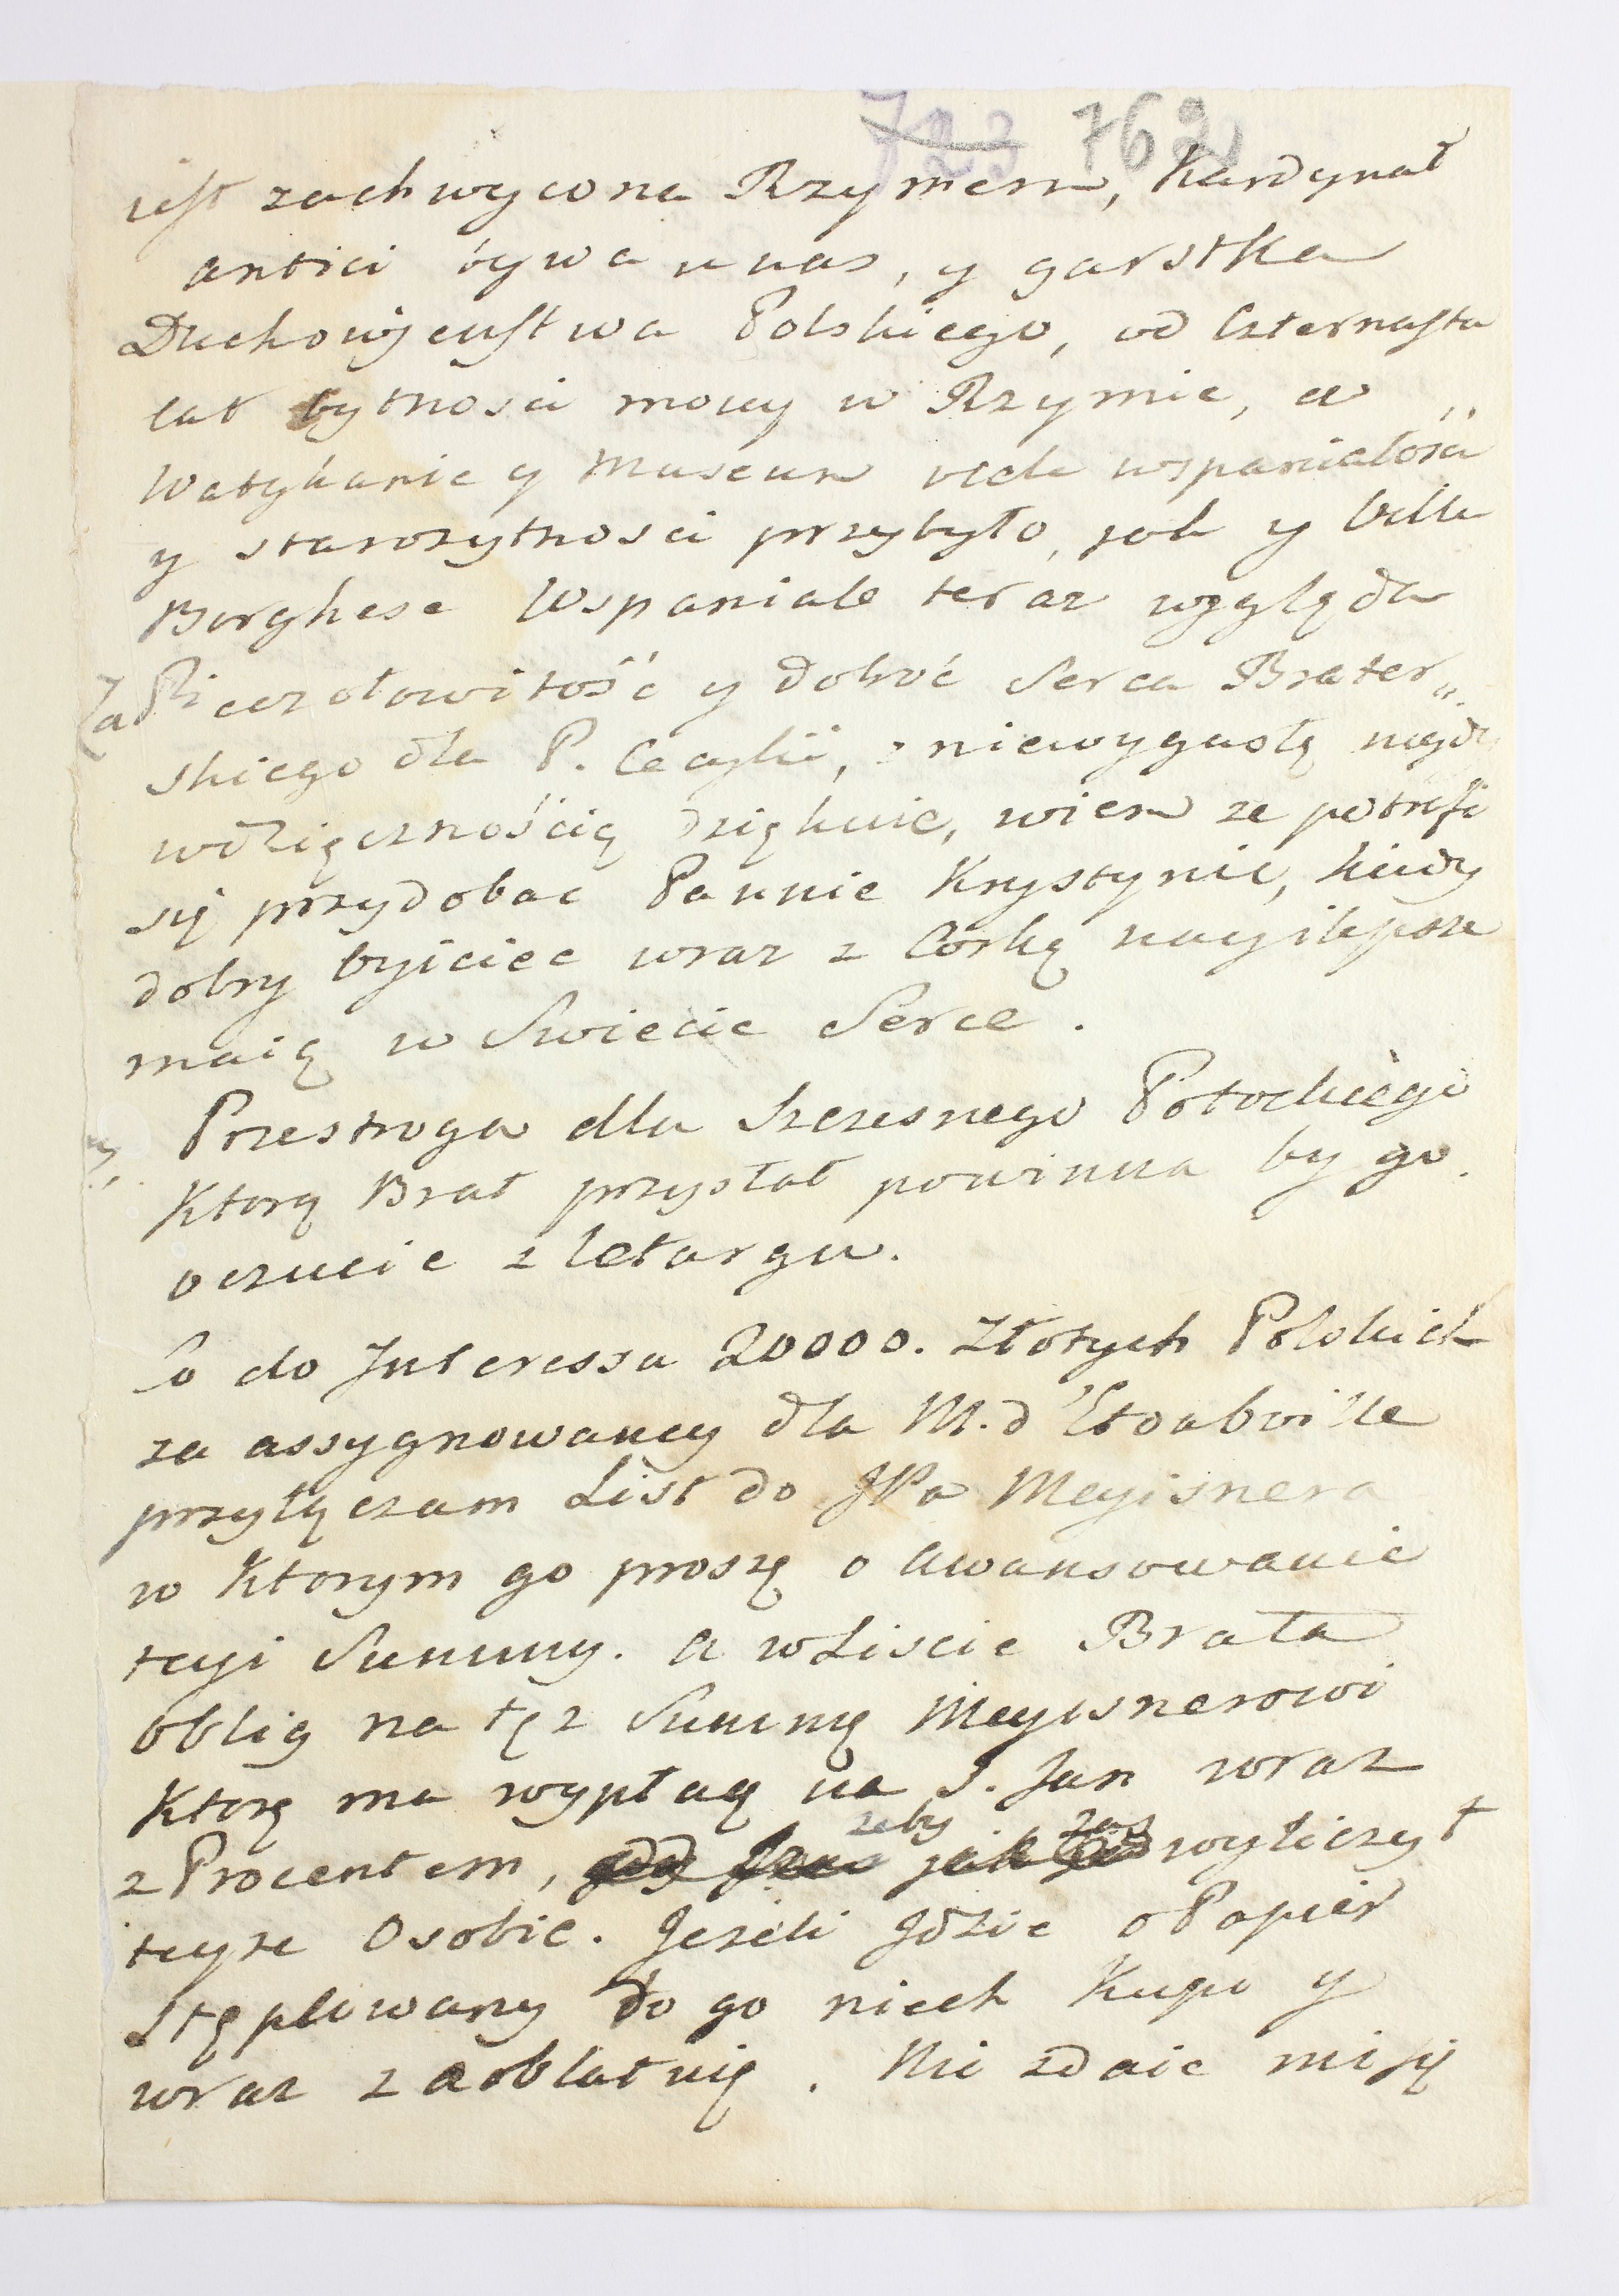 723 762
iest zachwycona Rzymem, Kardynał
antici bywa u nas, y garstka
Duchowięnstwa Polskiego, od Czternastu
lat bytnosci moiey w Rzymie, w
Watykanie y Museum wiele wspaniałości
y starozytnosci przybyło, jak y Villa
Borghese Wspaniale teraz wygłęda
Za Pieczołowitość y dobroć Serca Brater„
skiego dla P. Cecylii, z niewygasłą nigdy
wdzięcznością dziękuie, wiem ze potrafi
się przydobac Pannie Krystynie, kiedy
dobry Oyiciec wraz z Corką nayilepsze
maią w Swiecie Serce.
Przestroga dla Szczesnego Potockiego
Ktorą Brat przysłał powinna by go
ocucie z letargu.
Co do Interessu 20000. Złotych Polskich
za assygnowaney dla M. d'
przyłączam List do JPa Meyisnera
w Ktorym go proszę o awansowanie
teyi Summy. a w Liscie Brata
Oblig na tęz Summę Meyisnerowi
Ktorę ma wypłacę na S. Jan wraz
z Procentem, zeby zas wyliczył
teyze Osobie. Jezeli Jdzie o Papier
Stęplowany to go niech Kupi y
wraz z aoblatuię. Mi zdaie mi się